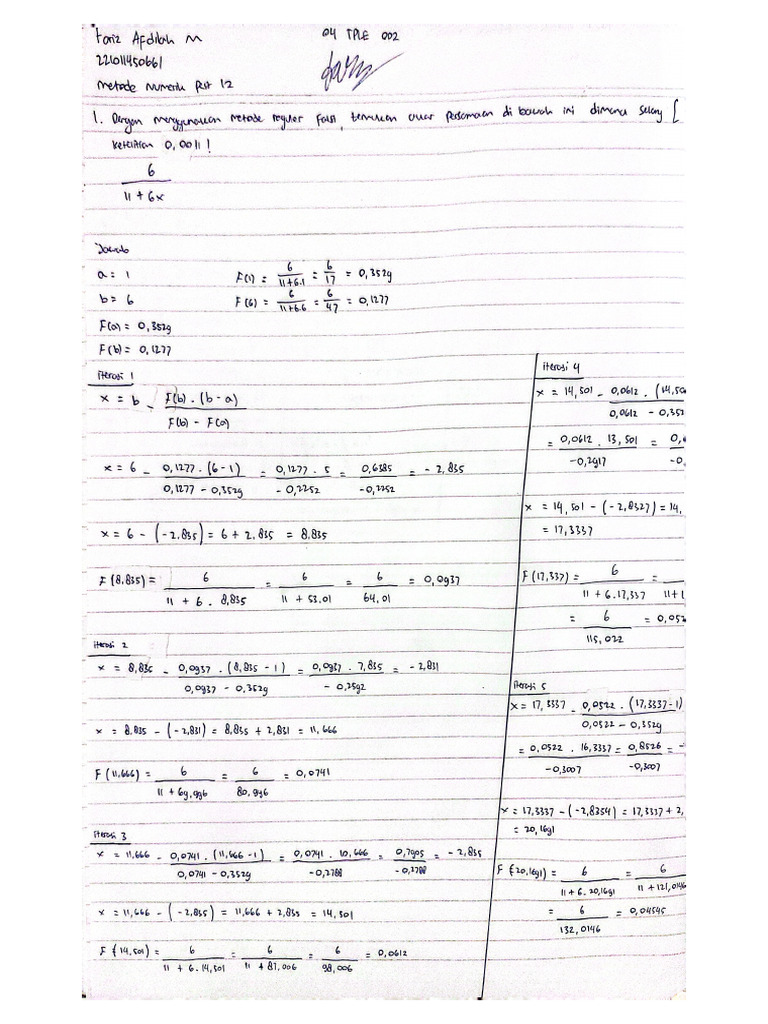 Fariz Afdilah M 04 TPLE 002
221011450661
Metode Numerik Pert 12
1. Dengan menggunakan metode regular falsi, temukan akar persamaan di bawah ini dimana selang [
ketelitian 0,0011!
6
11 + 6x
Jawab
a = 1 F(1) = 6/(11+6.1) = 6/17 = 0,3529
b = 6 F(6) = 6/(11+6.6) = 6/47 = 0,1277
F(a) = 0,3529
F(b) = 0,1277
iterasi 1
x = b - F(b) . (b - a)
F(b) - F(a)
x = 6 - 0,1277 . (6-1) = 0,1277 . 5 = 0,6385 = - 2,835
0,1277 - 0,3529 - 0,2252 - 0,2252
x = 6 - (-2,835) = 6 + 2,835 = 8,835
F(8,835) = 6 = 6 = 6 = 0,0937
11 + 6 . 8,835 11 + 53.01 64,01
iterasi 2
x = 8,835 - 0,0937 . (8,835 - 1) = 0,0937 . 7,835 = - 2,831
0,0937 - 0,3529 - 0,2592
x = 8.835 - (-2,831) = 8,835 + 2,831 = 11,666
F(11,666) = 6 = 6 = 0,0741
11 + 69,996 80,996
iterasi 3
x = 11,666 - 0,0741 . (11,666 - 1) = 0,0741 . 10,666 = 0,7905 = - 2,835
0,0741 - 0,3529 -0,2788 -0,2788
x = 11,666 - (-2,835) = 11,666 + 2,835 = 14,501
F(14,501) = 6 = 6 = 6 = 0,0612
11 + 6.14,501 11 + 87.006 98,006
iterasi 4
x = 14,501 - 0,0612 . (14,50
0,0612 - 0,352
= 0,0612 . 13,501 =
-0,2917
x = 14,501 - (-2,8327) = 14,
= 17,3337
F(17,337) = 6 =
11 + 6.17,337 11+1
= 6 = 0,052
115,022
iterasi 5
x = 17,3337 - 0,0522 . (17,3337-1)
0,0522 - 0,3529
= 0,0522 . 16,3337 = 0,8526 = -
-0,3007 -0,3007
x = 17,3337 - (-2,8354) = 17,3337 + 2,
= 20,1691
F(20,1691) = 6 = 6
11 + 6.20,1691 11 + 121,0146
= 6 = 0,04545
132,0146